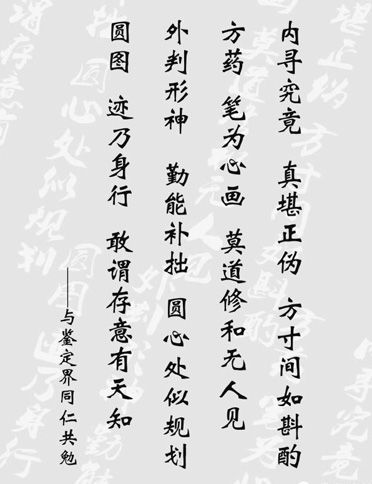 内寻究竟 真堪正伪 方寸间如斟酌
方药 笔为心画 莫道修和无人见
外判形神 勤能补拙 圆心处似规划
圆图 迹乃身行 敢谓存意有天知
——与鉴定界同仁共勉